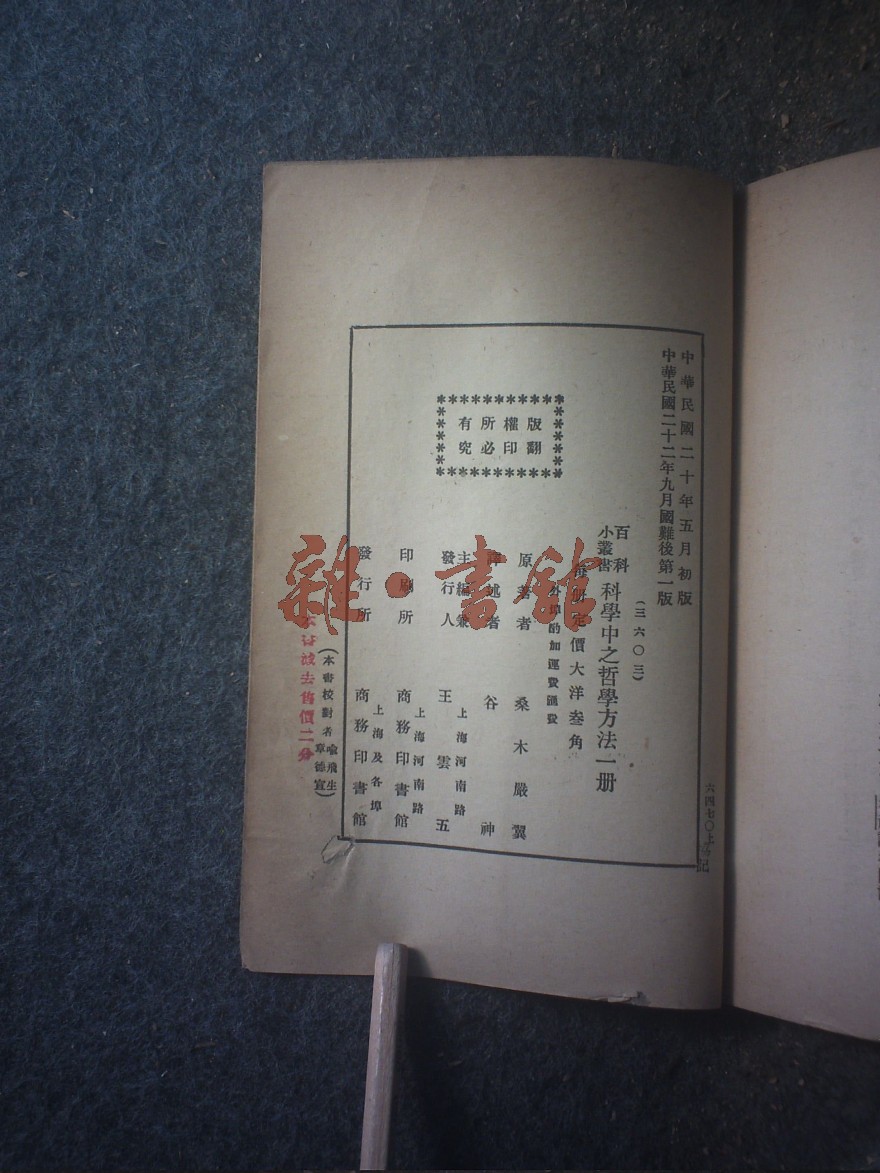 中華民國二十年五月初版
中華民國二十二年九月國難後第一版
(三六〇三)
百科
小叢書
科學中之哲學方法一册
每册定價大洋叁角
外埠酌加運費匯費
版權所有
翻印必究
原著者 桑木嚴翼
譯述者 谷神
主編兼
發行人 王雲五
上海河南路
印刷所 商務印書館
上海河南路
發行所 商務印書館
上海及各埠
(本書校對者 喻飛生
章德宣)
去售價二分
六四七〇上
記
雜·書館